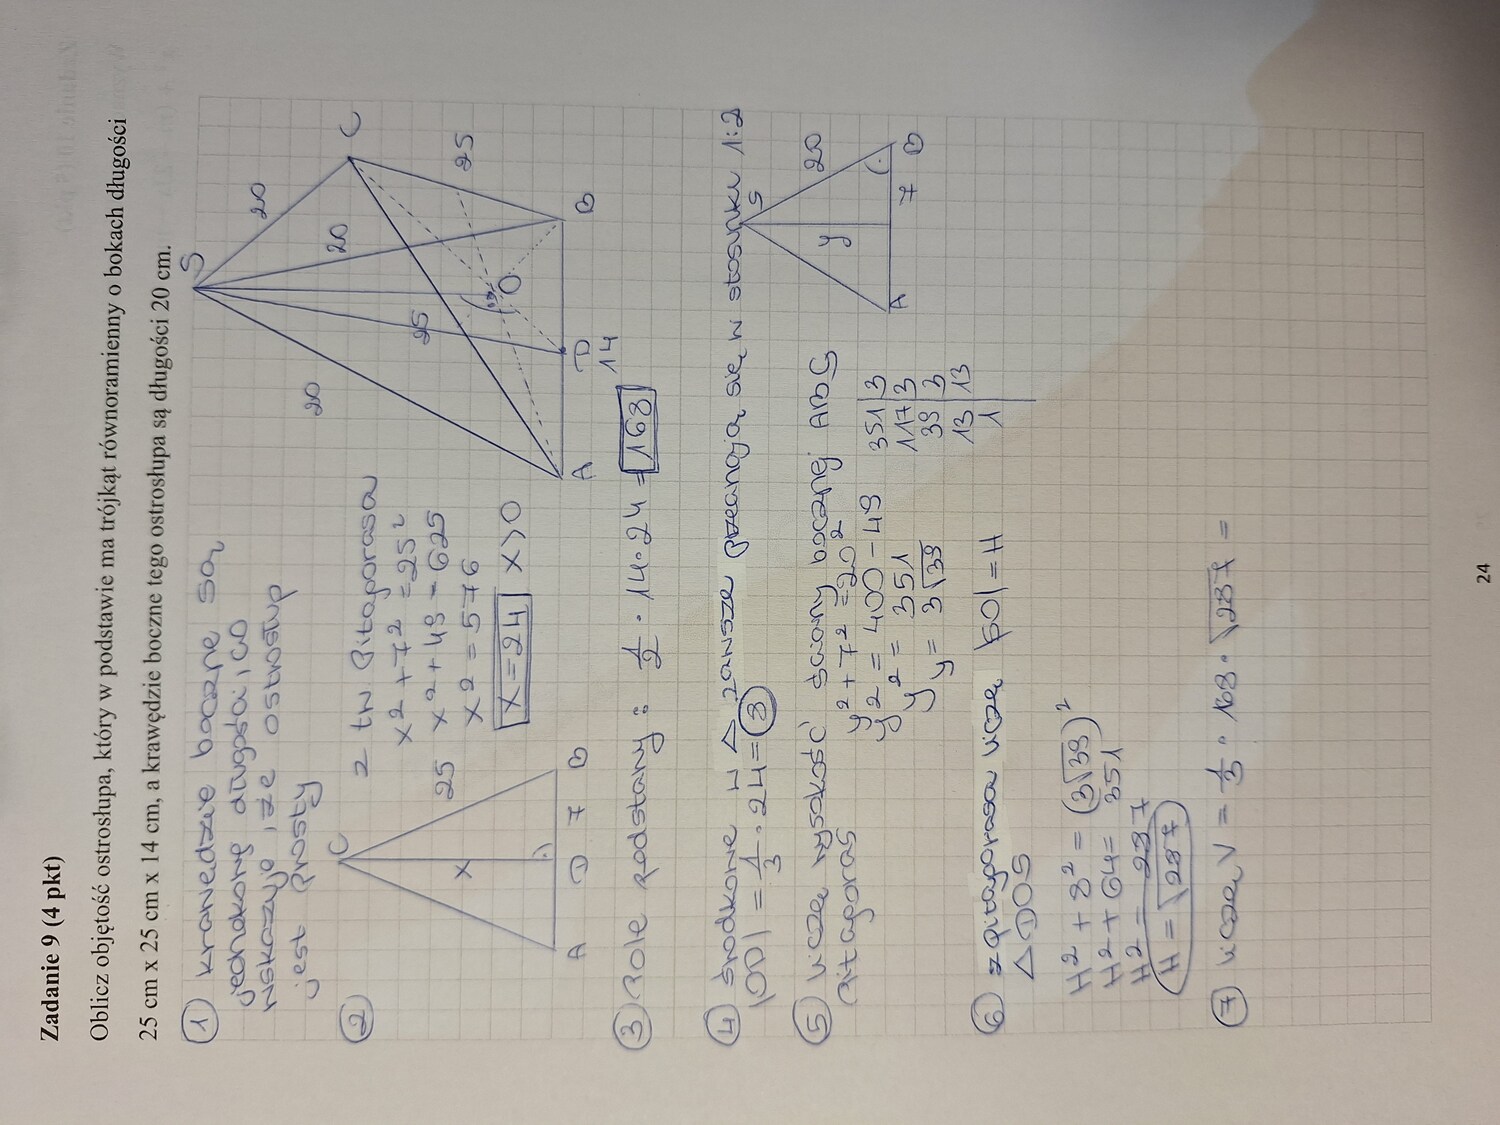 Zadanie 9 (4 pkt)
Oblicz objętość ostrosłupa, który w podstawie ma trójkąt równoramienny o bokach długości
25 cm x 25 cm x 14 cm, a krawędzie boczne tego ostrosłupa są długości 20 cm.
① krawędzie boczne są
jednakowej długości, co
wskazuje, że ostrosłup
jest prosty
S
20
20
20
25
25
C
O
A
D
B
14
②
C
25
x
A
D
7
B
z tw Pitagorasa
x² + 7² = 25²
x² + 49 = 625
x² = 576
x = 24 x > 0
③ Pole podstawy: 1/2 · 14 · 24 = 168
④ środkowe w △ zawsze przecinają się w stosunku 1:2
|OD| = 1/3 · 24 = 8
⑤ liczę wysokość ściany bocznej ABS
Pitagoras
y² + 7² = 20²
y² = 400 - 49
y² = 351
y = 3√39
351 | 3
117 | 3
39 | 3
13 | 13
1
S
20
y
A
7
B
⑥ z pitagorasa liczę |SO| = H
△DOS
H² + 8² = (3√39)²
H² + 64 = 351
H² = 287
H = √287
⑦ liczę V = 1/3 · 168 · √287 =
24